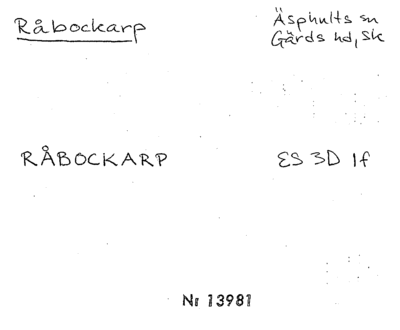 Råbockarp
Äsphults sn
Gärds hd, Sk
RÅBOCKARP
ES 3D 1f
Nr 13981